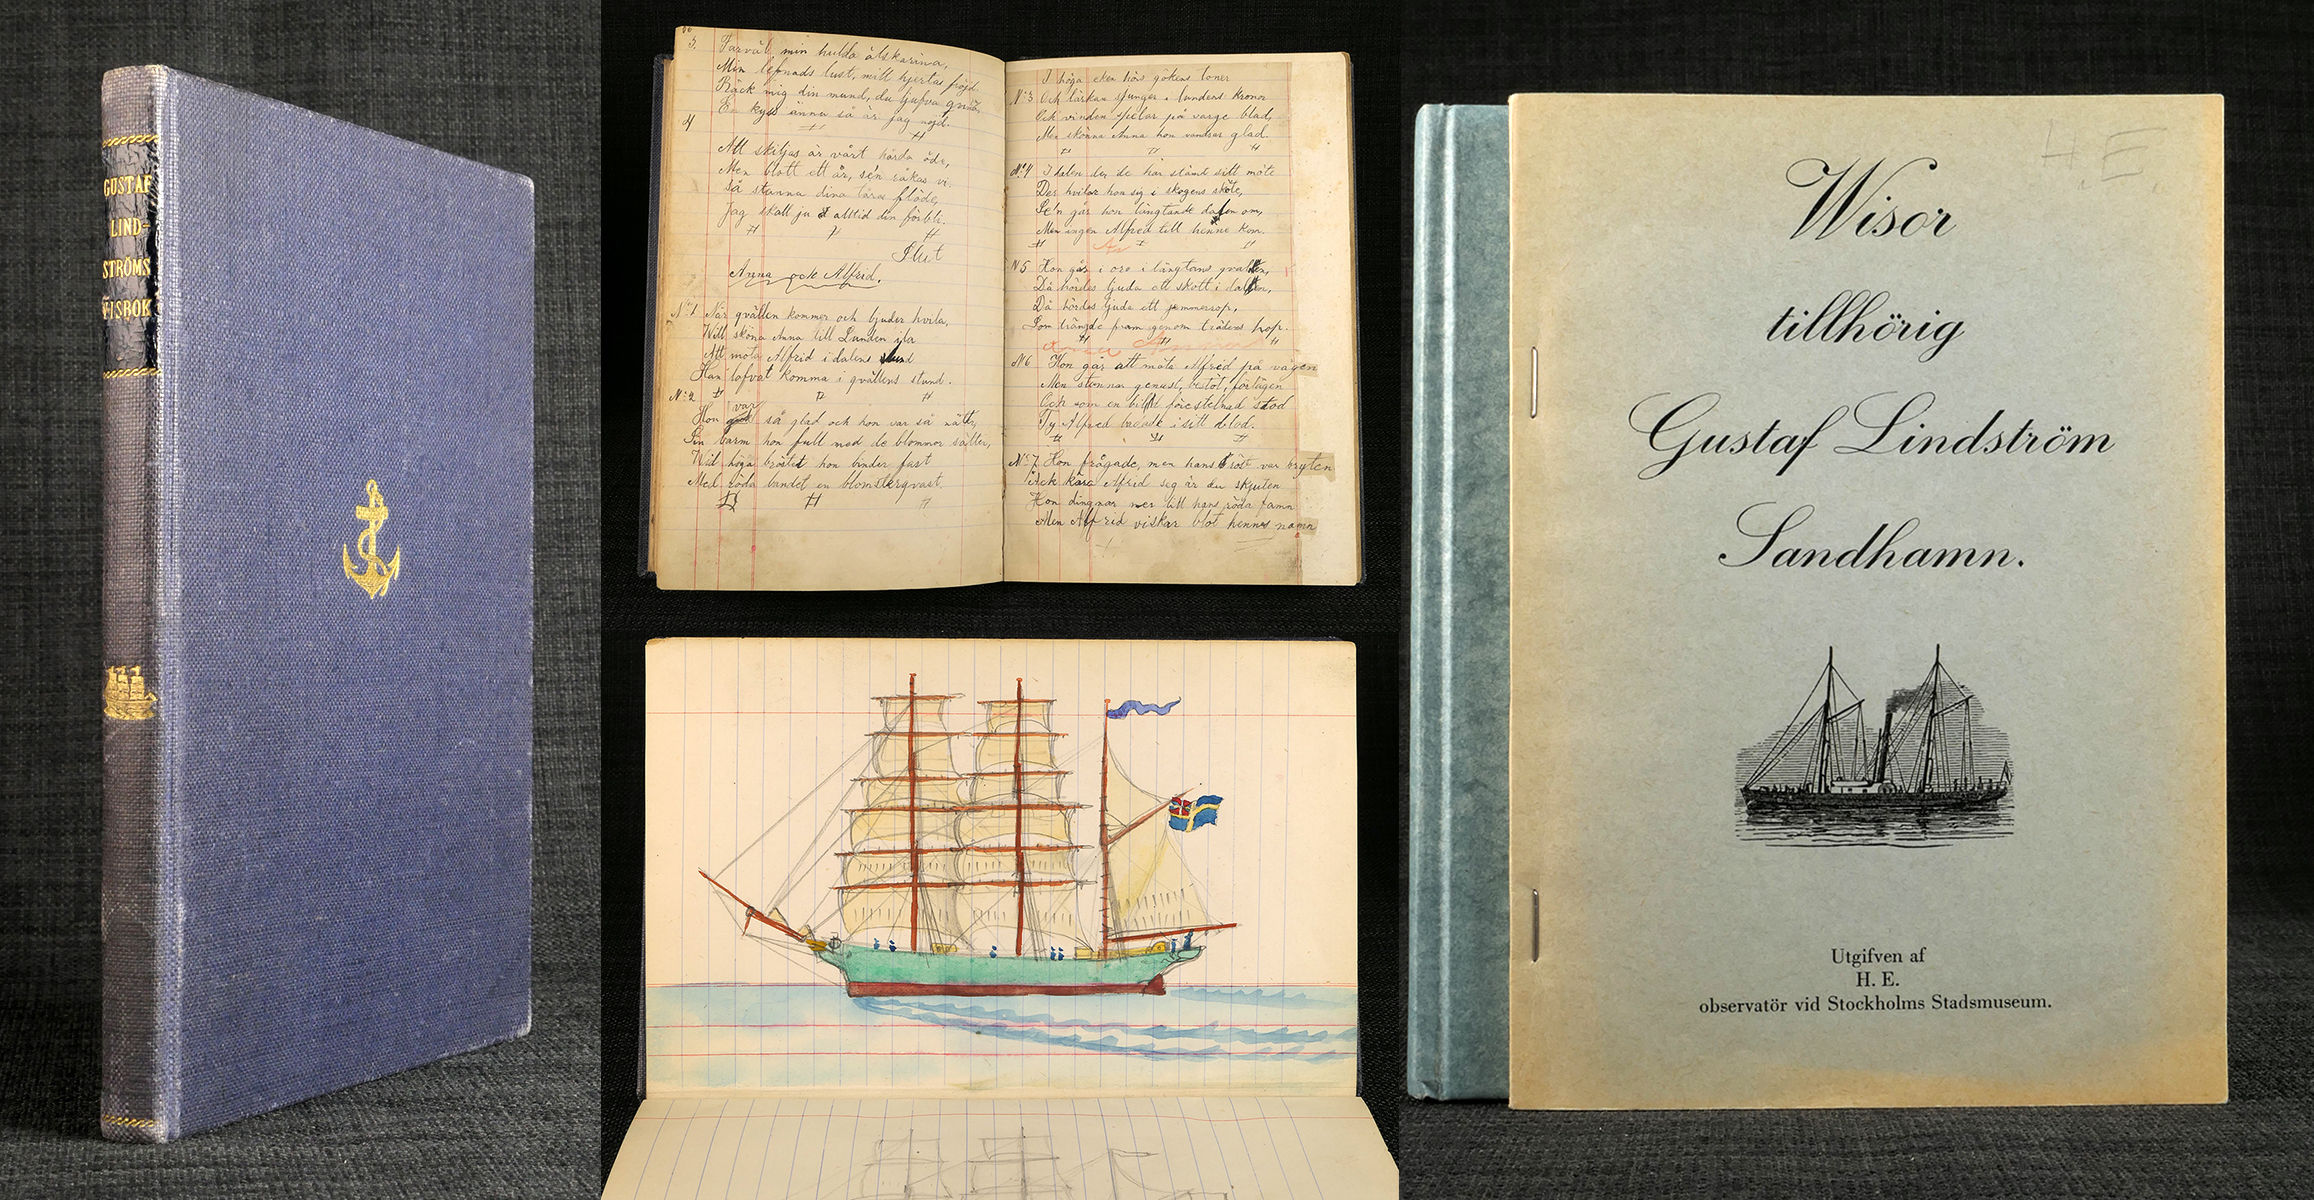 GUSTAF
LIND-
STRÖMS
VISBOK
3. Farväl min hulda älskarinna,
Min lefnads lust, mitt hjertas fröjd.
Räck mig din mund, du ljufva
En kyss ännu så är jag nöjd.
4
Att skiljas är vårt hårda öde,
Men blott ett år, se'n råkas vi.
Så stanna dina tåra flöde,
Jag skall ju alltid din förbli.
Slut
Anna och Alfrid.
No 1 När qvällen kommer och bjuder hvila,
Will sköna Anna till Lunden ila
Att möta Alfrid i dalens lund
Han lofvat komma i qvällens stund.
No 2
Hon var så glad och hon var så nätter,
Sin barm hon full med de blommor sätter,
Wid höga bröstet hon binder fast
Med röda bandet en blomsterqvast.
I höga eken hörs gökens toner
No 3 Och lärkan sjunger i lundens kronor
Och vinden spelar på varge blad,
Men skönna Anna hon vandrar glad.
No 4 I dalen der, de har stämt sitt möte
Der hvilar hon sig i skogens sköte,
Se'n går hon längtande dalen om,
Men ingen Alfred till henne kom.
N 5 Hon går i oro i längtans qvalen,
Då hördes ljuda ett skott i dalen,
Då hördes ljuda ett jemmerrop,
Som trängde fram genom trädens hop.
N 6 Hon går att möta Alfred på vägen
Men stannar genast, bestört, förlägen
Och som en bild förestelnad stod
Ty Alfred badade i sitt blod.
No 7 Hon frågade, men hans röst var bryten
Ack kära Alfrid seg är du skjuten
Hon dingnar ner till hans röda famn
Men Alfrid viskar blot hennes namn
H.E.
Wisor
tillhörig
Gustaf Lindström
Sandhamn.
Utgifven af
H. E.
observatör vid Stockholms Stadsmuseum.